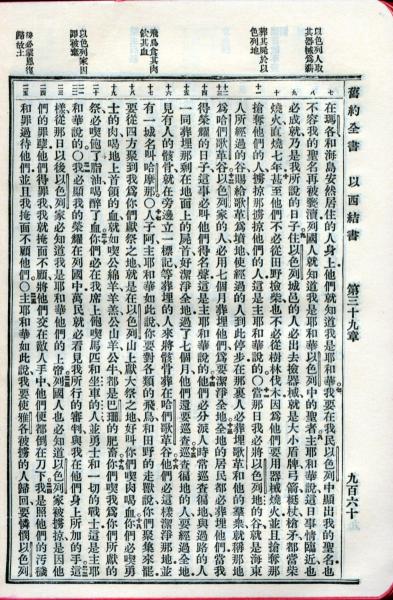 舊約全書　以西結書　第三十九章　九百六十
以色列人取
其器械為薪
葬其屍於以
色列地
飛鳥食其肉
飲其血
以色列家因
罪被擄
終必蒙恩復
歸故土
在瑪各和海島安然居住的人身上他們就知道我是耶和華我要在我民以色列中顯出我的聖名也
不容我的聖名再被褻瀆列國人就知道我是耶和華以色列中的聖者主耶和華說這日事情臨近也
必成就乃是我所說的日子住以色列城邑的人必出去撿器械就是大小盾牌弓箭梃杖槍矛都當柴
燒火直燒七年甚至他們不必從田野撿柴也不必從樹林伐木因為他們要用器械燒火並且搶奪那
搶奪他們的人擄掠那擄掠他們的人這是主耶和華說的○當那日我必將以色列地的谷就是海東
人所經過的谷賜給歌革為墳地使經過的人到此停步在那裏人必葬埋歌革和他的羣眾就稱那地
為哈們歌革谷以色列家的人必用七個月葬埋他們為要潔淨全地全地的居民都必葬埋他們當我
得榮耀的日子這事必叫他們得名聲這是主耶和華說的他們必分派人時常巡查徧地與過路的人
一同葬埋那剩在地面上的屍首好潔淨全地過了七個月他們還要巡查巡查徧地的人要經過全地
見有人的骸骨就在旁邊立一標記等葬埋的人來將骸骨葬在哈們歌革谷他們必這樣潔淨那地並
有一城名叫哈摩那○人子阿主耶和華如此說你要對各類的飛鳥和田野的走獸說你們聚集來罷
要從四方聚到我為你們獻祭之地就是在以色列山上獻大祭之地好叫你們喫肉喝血你們必喫勇
士的肉喝地上首領的血就如喫公綿羊羊羔公山羊公牛都是巴珊的肥畜你們喫我為你們所獻的
祭必喫飽了脂油喝醉了血你們必在我席上飽喫馬匹和坐車的人並勇士和一切的戰士這是主耶
和華說的○我必顯我的榮耀在列國中萬民就必看見我所行的審判與我在他們身上所加的手這
樣從那日以後以色列家必知道我是耶和華他們的上帝列國人也必知道以色列家被擄掠是因他
們的罪孽他們得罪我我就掩面不顧將他們交在敵人手中他們便都倒在刀下我是照他們的污穢
和罪過待他們並且我掩面不顧他們○主耶和華如此說我要使雅各被擄的人歸回要憐憫以色列